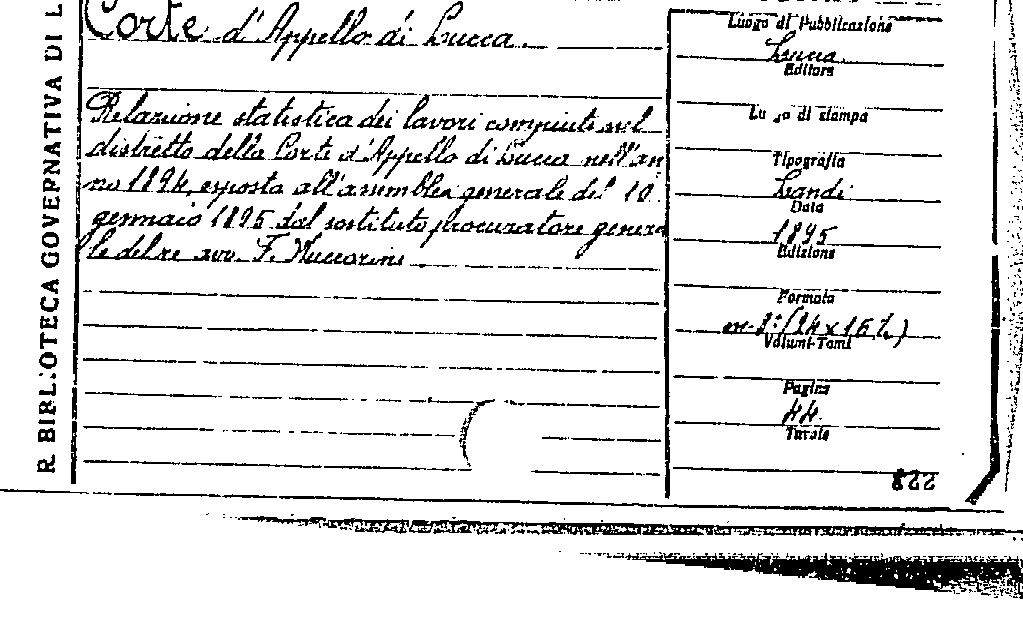 R. BIBLIOTECA GOVERNATIVA DI L
Corte d'Appello di Lucca.
Relazione statistica dei lavori compiuti nel
distretto della Corte d'Appello di Lucca nell'an
no 1894, esposta all'assemblea generale del 10
gennaio 1895 dal sostituto procuratore genera
le del re avv. F.
Luogo di Pubblicazione
Lucca.
Editore
Luogo di stampa
Tipografia
Landi
Data
1895
Edizione
Formato
in-8° (24x16½)
Volumi-Tomi
Pagine
44.
Tavole
822